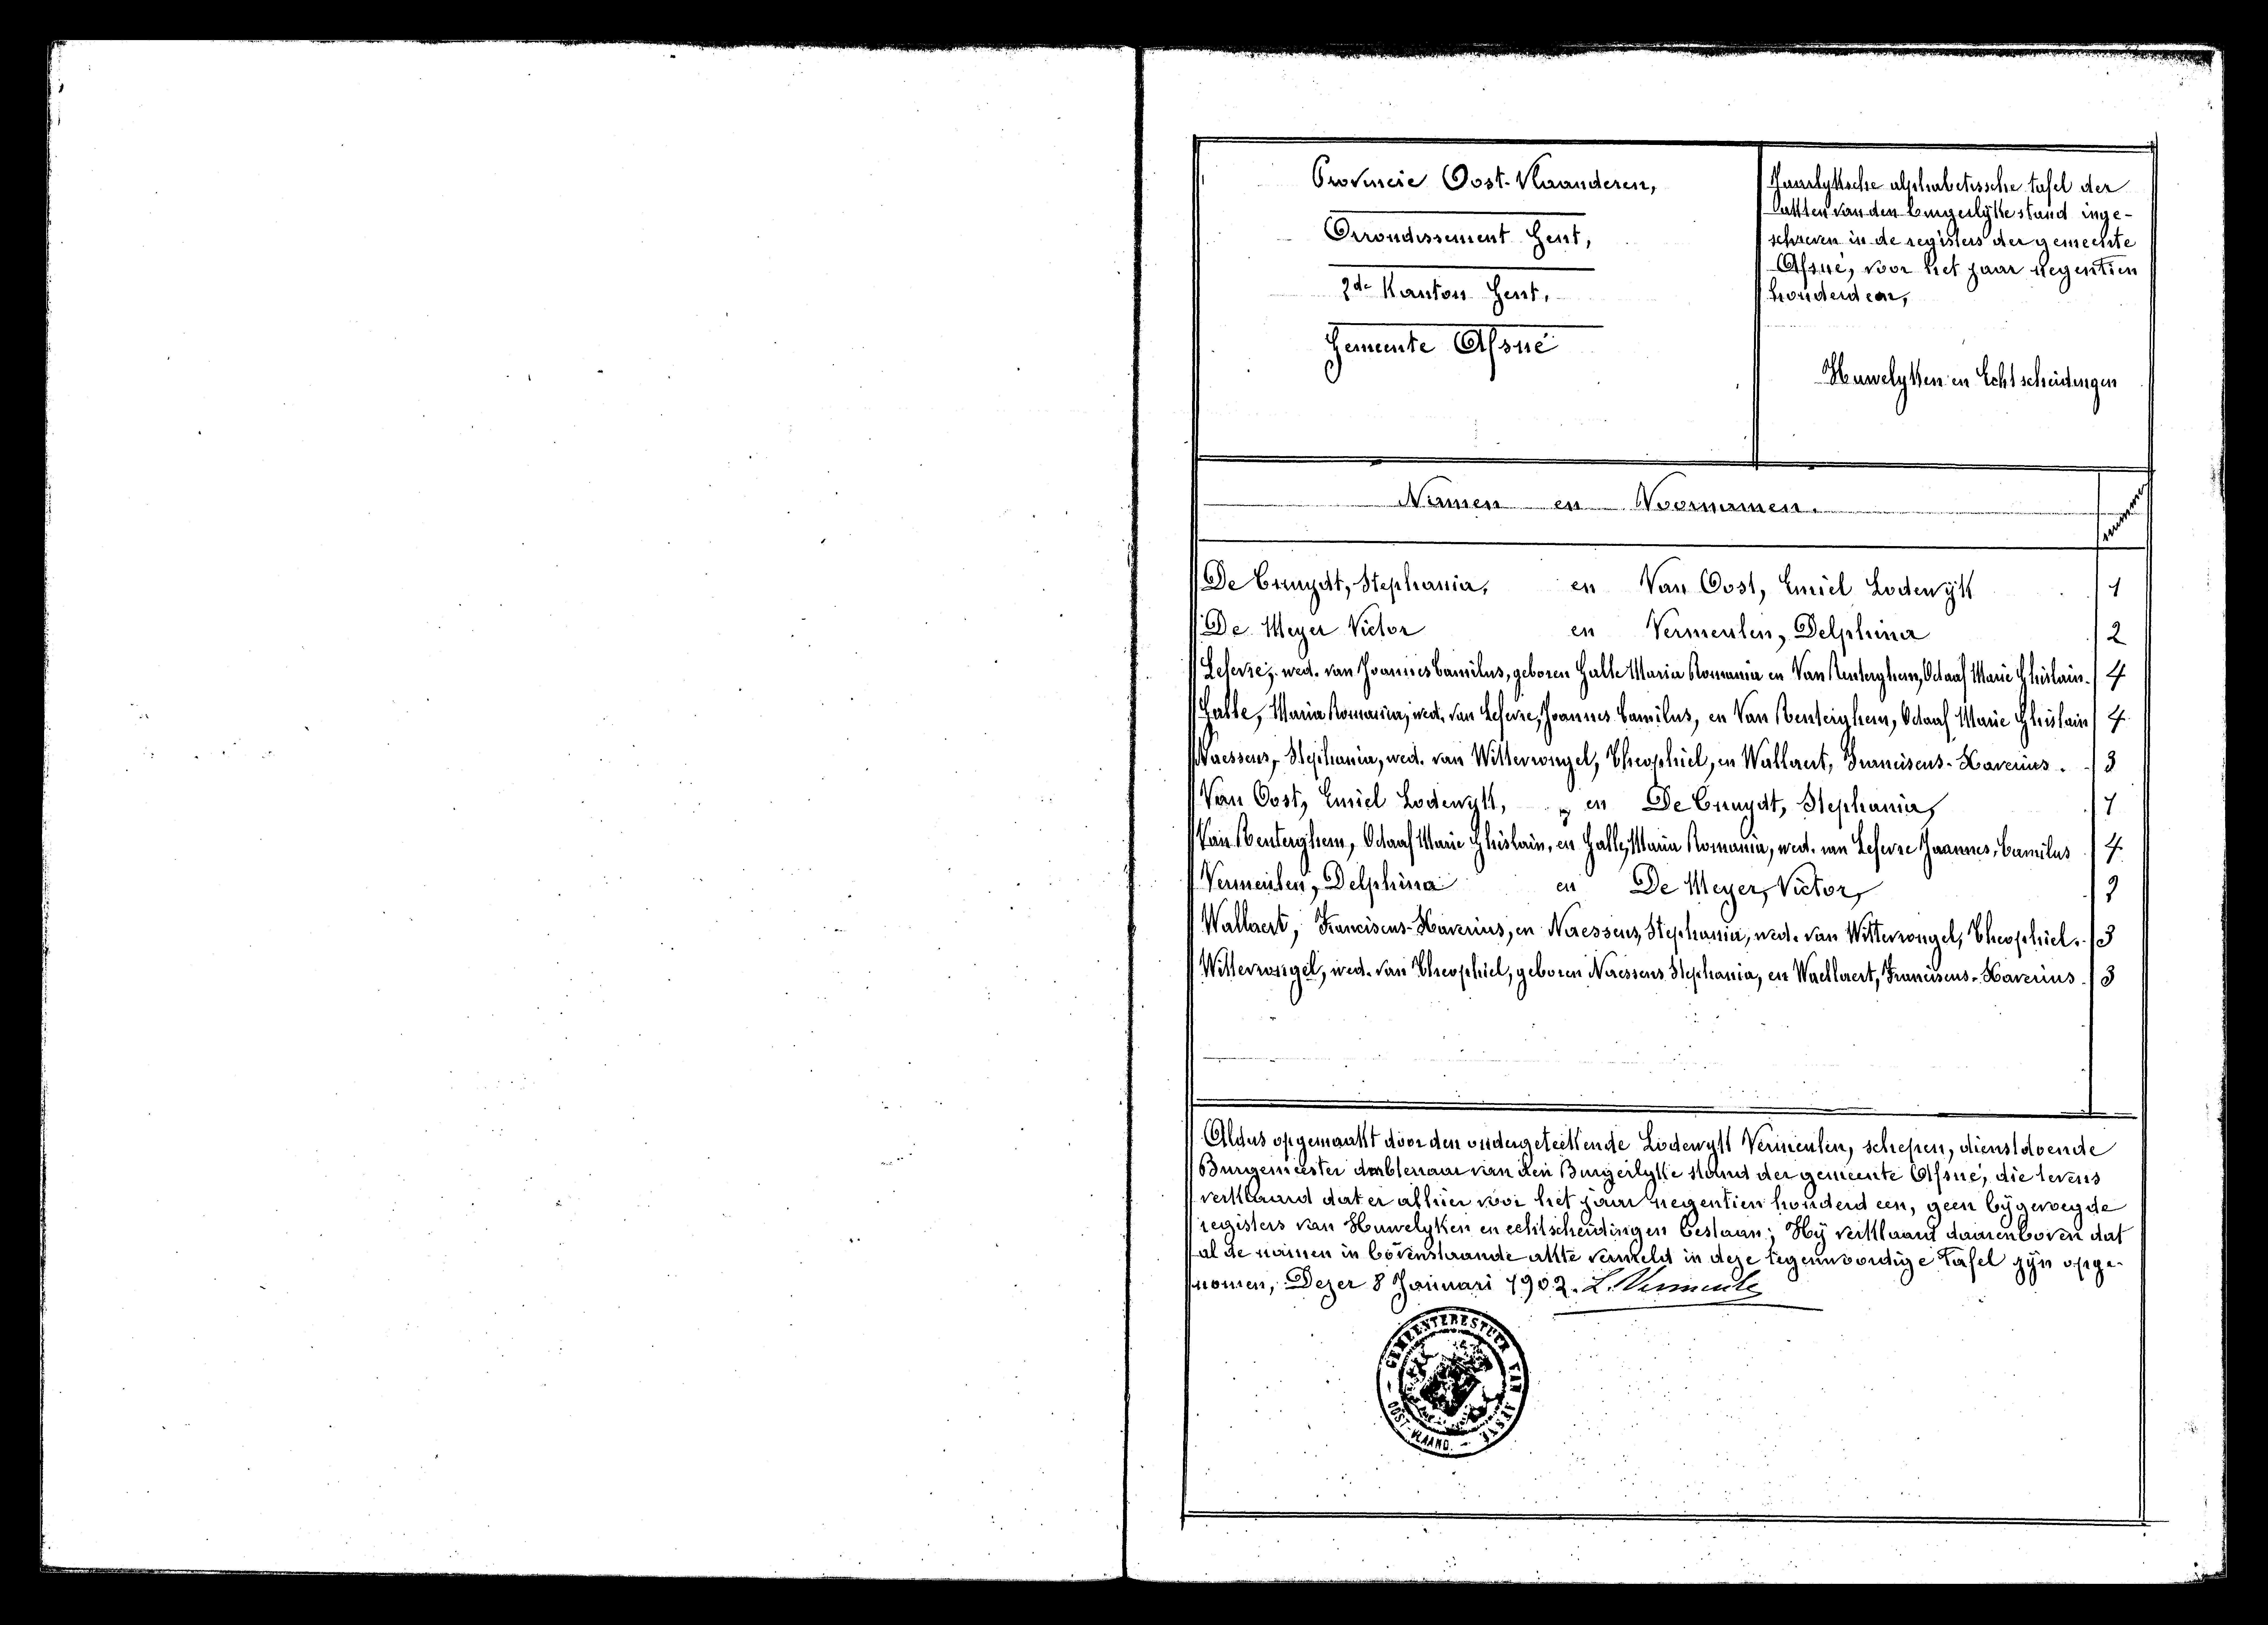 Provincie Oost-Vlaanderen,
Arrondissement Gent,
2de Kanton Gent,
Gemeente Afsné
Jaarlyksche alphabetissche tafel der
akten van den burgerlyke stand inge-
schreven in de registers der gemeente
Afsné, voor het jaar negentien
honderd een,
Huwelyken en Echtscheidingen
Namen en Voornamen. nummer
De Cruydt, Stephania, en Van Oost, Emiel Lodewyk 1
De Meyer Victor en Vermeulen, Delphina 2
Lefevre, wed. van Joannes Camilus, geboren Halle Maria Romania en Van Renterghem, Octaaf Marie Ghislain. 4
Halle, Maria Romania, wed. van Lefevre, Joannes Camilus, en Van Renterghem, Octaaf Marie Ghislain 4
Naessens, Stephania, wed. van Wittevrongel, Theophiel, en Wallaert, Franciscus-Xaverius. 3
Van Oost, Emiel Lodewyk, en De Cruydt, Stephania, 1
Van Renterghem, Octaaf Marie Ghislain, en Halle, Maria Romania, wed. van Lefevre Joannes, Camilus 4
Vermeulen, Delphina en De Meyer, Victor, 2
Wallaert, Franciscus-Xaverius, en Naessens, Stephania, wed. van Wittevrongel, Theophiel. 3
Wittevrongel, wed. van Theophiel, geboren Naessens Stephania, en Waellaert, Franciscus-Xaverius 3
Aldus opgemaakt door den ondergeteekende Lodewyk Vermeulen, schepen, dienstdoende
Burgemeester ambtenaar van den Burgerlyke stand der gemeente Afsné, die tevens
verklaard dat er alhier voor het jaar negentien honderd een, geen bygevoegde
registers van Huwelyken en echtscheidingen bestaan; Hy verklaard daarenboven dat
al de namen in bovenstaande akte vermeld in deze tegenwoordige tafel zyn opge-
nomen, Dezer 8 Januari 1902. L. Vermeulen
GEMEENTEBESTUUR VAN AFSNÉ
OOST-VLAAND.